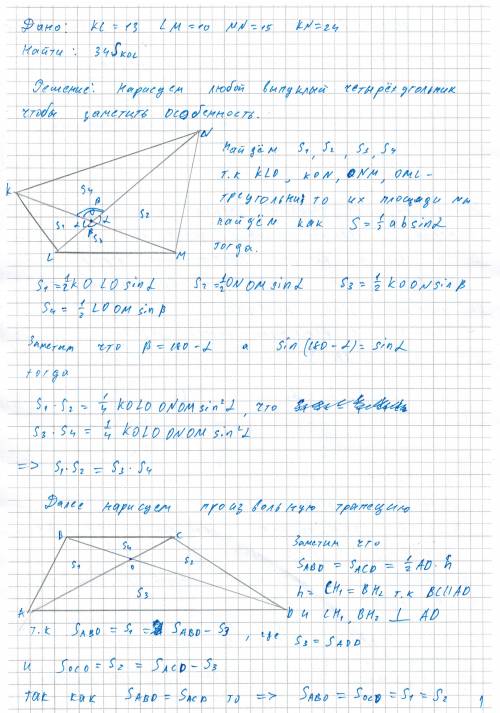 Дано: KL = 13 LM = 10 MN = 15 KN = 24
Найти: 34S_KOL
Решение: Нарисуем любой выпуклый четырёхугольник
чтобы заметить особенность.
N
K
S4
β
S1
α
O
α
β
S3
S2
L
M
Найдём S1, S2, S3, S4
т.к KLO, KON, ONM, OML-
треугольники то их площади мы
найдём как S=½absinα
тогда.
S1=½KO LO sinα S2=½ONOMsinα S3=½KOONsinβ
S4=½LO OM sinβ
Заметим что β=180-α а sin(180-α)=sinα
тогда
S1·S2=¼KOLO ONOMsin²α, что
S3·S4=¼KOLO ONOMsin²α
=> S1·S2=S3·S4
Далее нарисуем произвольную трапецию
B
C
S4
S1
O
S2
S3
A
D
Заметим что
S_ABD=S_ACD=½AD·h
h=CH1=BH2 т.к BC||AD
и CH1, BH2 ⊥ AD
т.к S_ABO=S1=S_ABD-S3, где S3=S_AOD
и S_OCD=S2=S_ACD-S3
так как S_ABD=S_ACD то => S_ABO=S_OCD=S1=S2